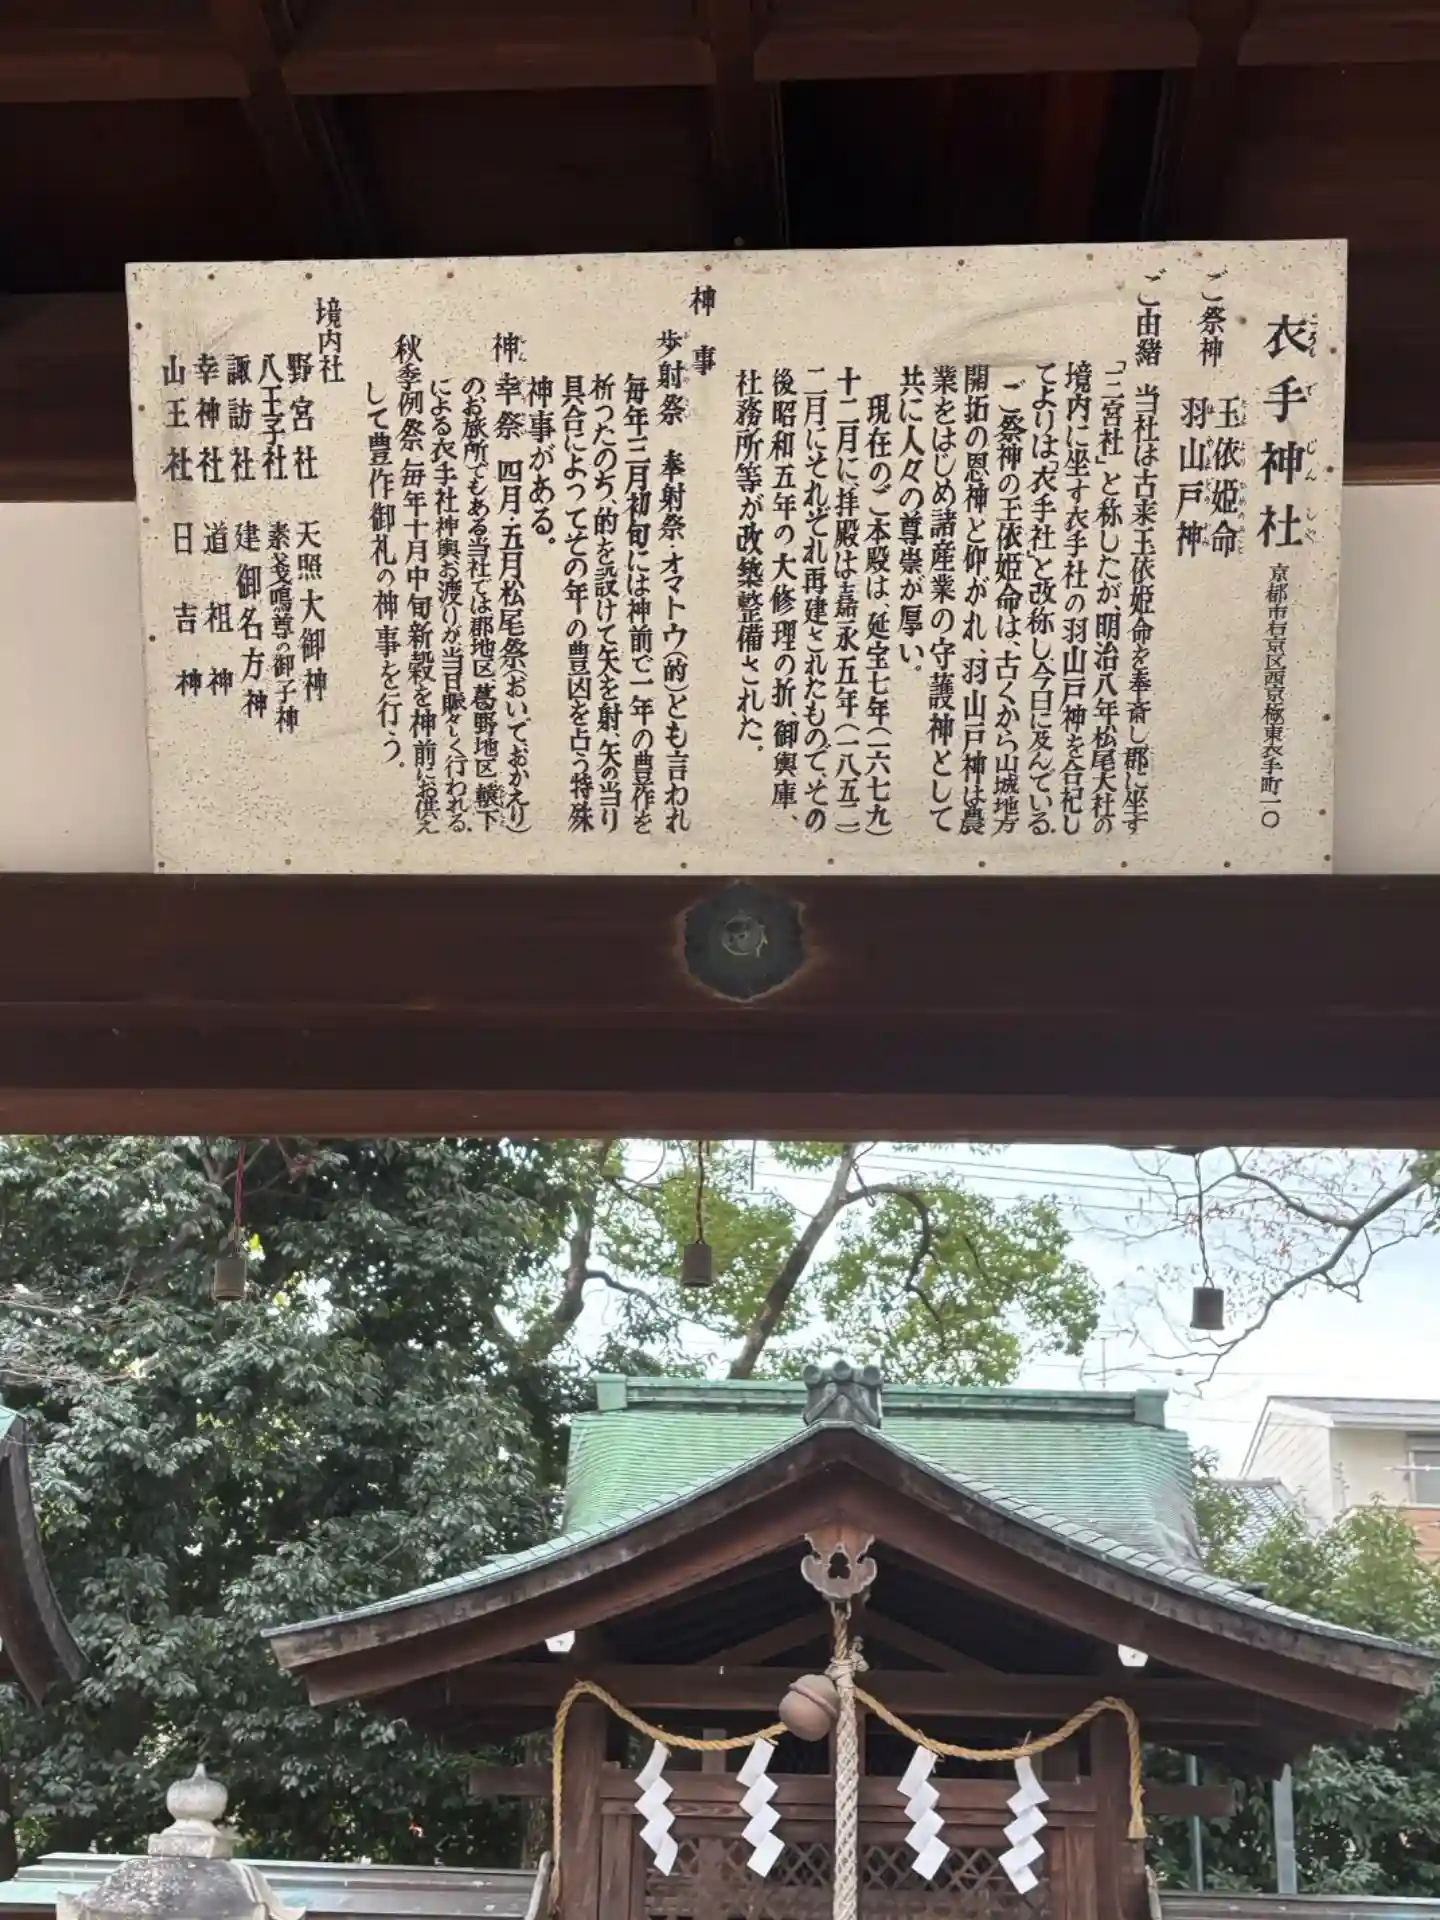 衣手神社 京都市右京区西京極東衣手町一〇
ころもで じんじゃ
ご祭神 玉依姫命
たまよりひめのみこと
羽山戸神
はやまどのかみ
ご由緒
当社は古来玉依姫命を奉斎し郡に坐す
「三宮社」と称したが、明治八年松尾大社の
境内に坐す衣手社の羽山戸神を合祀し
てよりは「衣手社」と改称し今日に及んでいる。
ご祭神の玉依姫命は、古くから山城地方
開拓の恩神と仰がれ、羽山戸神は農
業をはじめ諸産業の守護神として
共に人々の尊崇が厚い。
現在のご本殿は、延宝七年(一六七九)
十二月に、拝殿は嘉永五年(一八五二)
二月にそれぞれ再建されたもので、その
後昭和五年の大修理の折、御輿庫、
社務所等が改築整備された。
神事
歩射祭 奉射祭・オマトウ(的)とも言われ
毎年三月初旬には神前で一年の豊作を
祈ったのち、的を設けて矢を射、矢の当り
具合によってその年の豊凶を占う特殊
神事がある。
神幸祭 四月・五月松尾祭(おいで、おかえり)
のお旅所でもある当社では郡地区、葛野地区、轅下
による衣手社神輿お渡りが当日賑々しく行われる。
秋季例祭 毎年十月中旬新穀を神前にお供え
して豊作御礼の神事を行う。
境内社
野宮社 天照大御神
八王子社 素戔鳴尊の御子神
諏訪社 建御名方神
幸神社 道祖神
山王社 日吉神